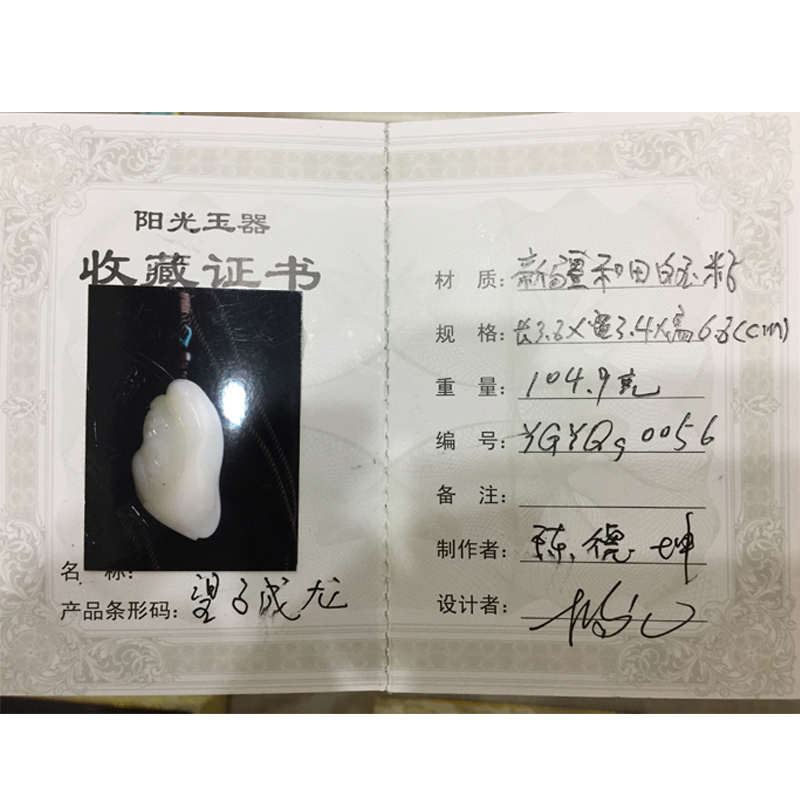 阳光玉器
收藏证书
名 称:
产品条形码: 望子成龙
材 质: 新疆和田白玉籽
规 格: 长3.8×宽3.4×高6.8(cm)
重 量: 104.9克
编 号: YGYQ 0056
备 注:
制作者: 陈德坤
设计者: